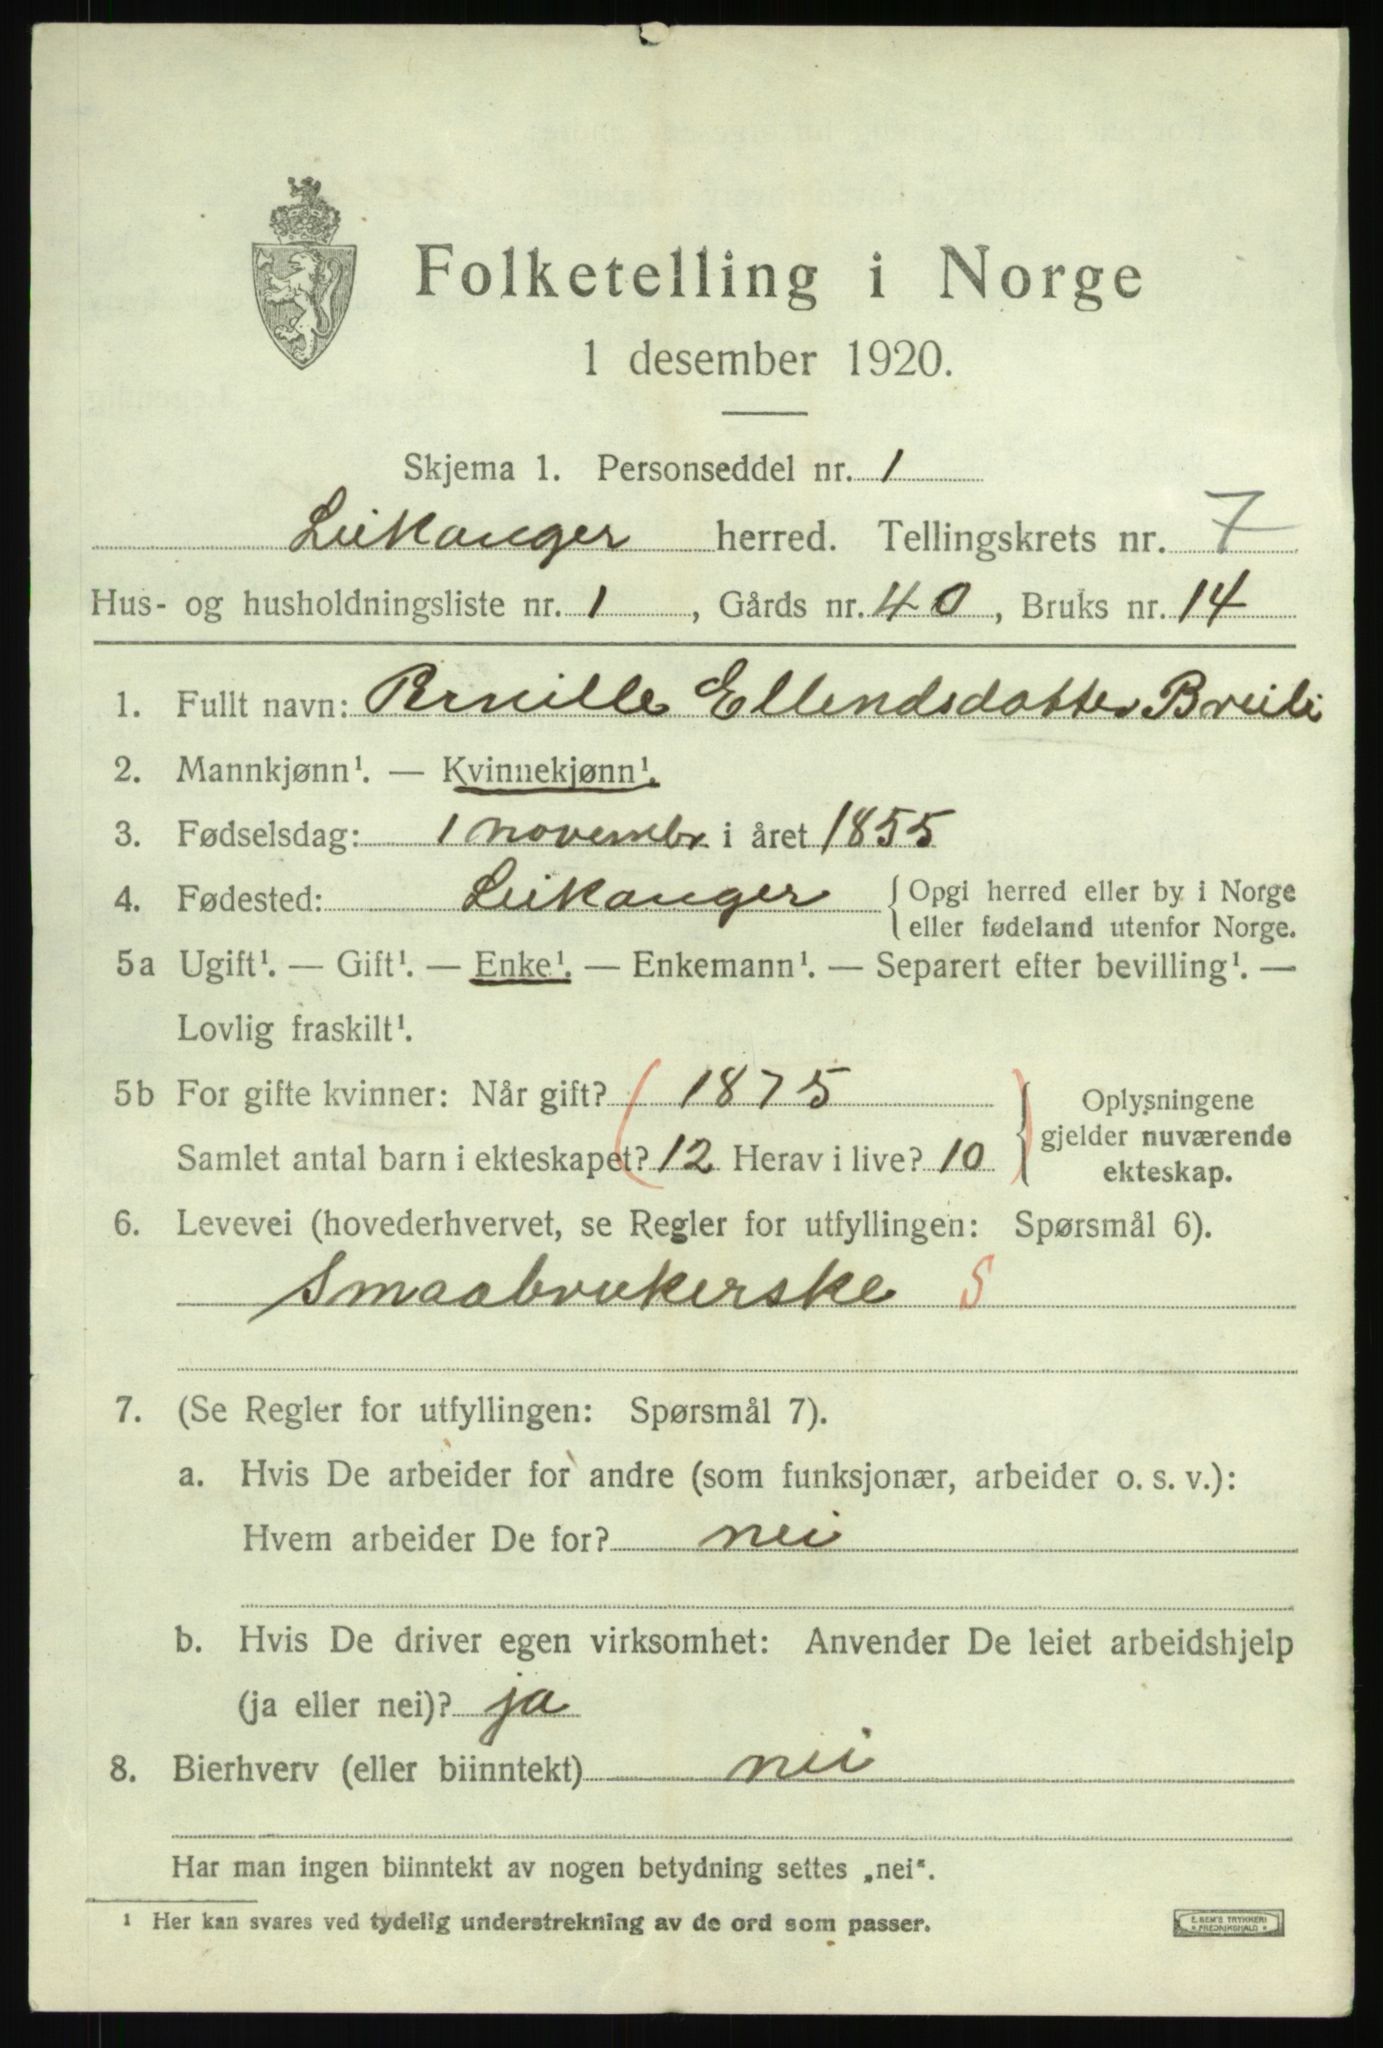 Folketelling i Norge
1 desember 1920.
Skjema 1. Personseddel nr. 1
Leikanger herred. Tellingskrets nr. 7
Hus- og husholdningsliste nr. 1, Gårds nr. 40, Bruks nr. 14
1. Fullt navn: Ellendsdotter Breili
2. Mannkjønn¹. — Kvinnekjønn¹.
3. Fødselsdag: 1 novembr i året 1855
4. Fødested: Leikanger { Opgi herred eller by i Norge
eller fødeland utenfor Norge.
5a Ugift¹. — Gift¹. — Enke¹. — Enkemann¹. — Separert efter bevilling¹. —
Lovlig fraskilt¹.
5b For gifte kvinner: Når gift? ( 1875 ) { Oplysningene
gjelder nuværende
ekteskap.
Samlet antal barn i ekteskapet? 12 Herav i live? 10
6. Levevei (hovederhvervet, se Regler for utfyllingen: Spørsmål 6).
Smaabrukerske S
7. (Se Regler for utfyllingen: Spørsmål 7).
a. Hvis De arbeider for andre (som funksjonær, arbeider o. s. v.):
Hvem arbeider De for? nei
b. Hvis De driver egen virksomhet: Anvender De leiet arbeidshjelp
(ja eller nei)? ja
8. Bierhverv (eller biinntekt) nei
Har man ingen biinntekt av nogen betydning settes „nei“.
¹ Her kan svares ved tydelig understrekning av de ord som passer.
E. SEM'S TRYKKERI
* FREDRIKSHALD *